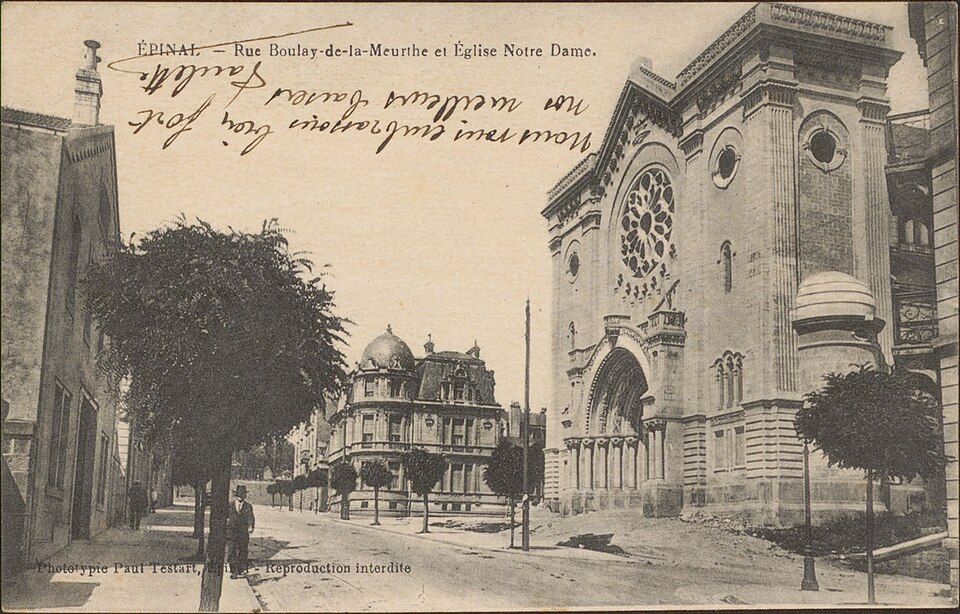 ÉPINAL — Rue Boulay-de-la-Meurthe et Église Notre Dame.
Nous vous embrassons bien fort
nos meilleurs baisers
Paulette
Phototypie Paul Testart, Épinal - Reproduction interdite